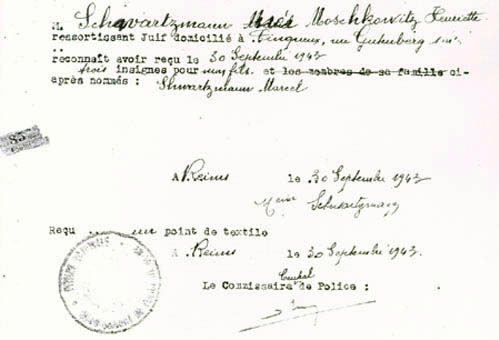 M. Schwartzmann Née Moschkowitz Henriette
ressortissant Juif domicilié à Tinqueux, rue Gutenberg
reconnaît avoir reçu le 30 Septembre 1943
trois insignes pour mon fils. et les membres de sa famille ci-
après nommés : Shwartzmann Marcel
A Reims le 30 Septembre 1943
Mme Schwartzmann
Reçu un point de textile
A Reims le 30 Septembre 1943.
Central
Le Commissaire de Police :